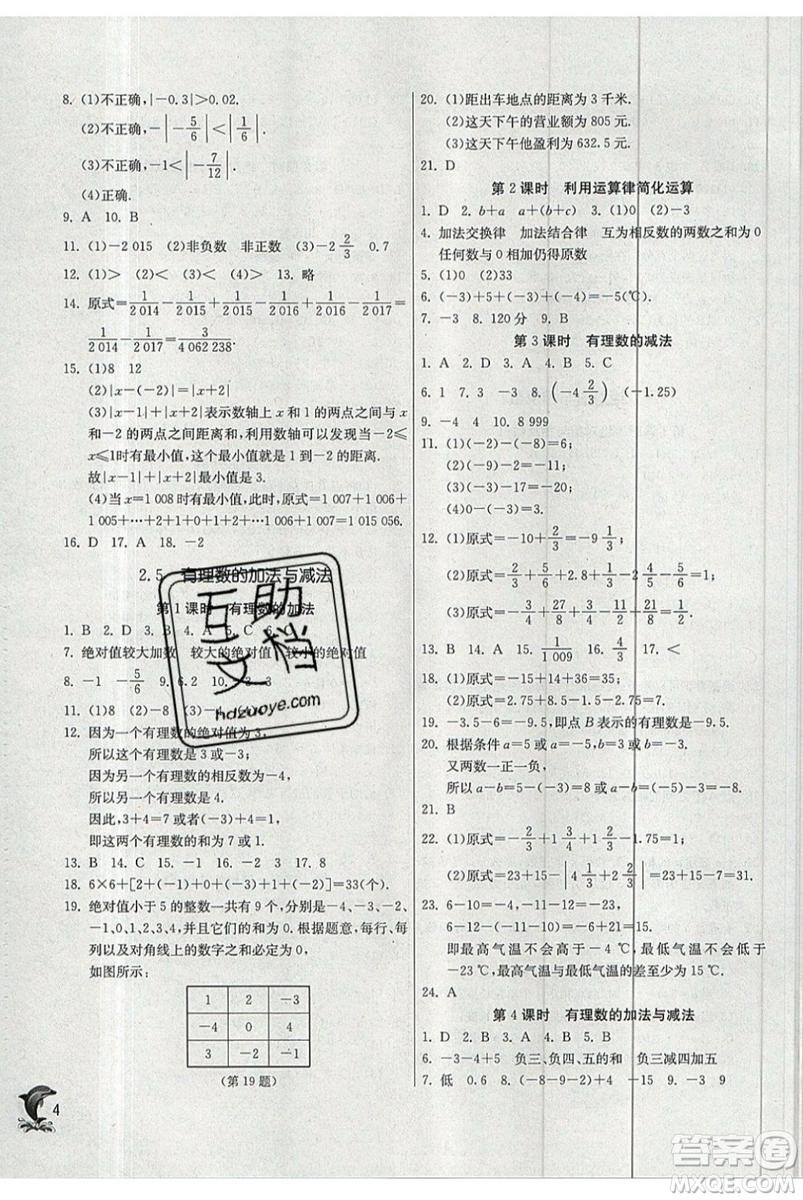 8. (1)不正确,|−0.3|>0.02.
(2)不正确,−|−5/6|<|1/6|.
(3)不正确,−1<|−7/12|.
(4)正确.
9. A 10. B
11. (1)−2 015 (2)非负数 非正数 (3)−2 2/3 0.7
12. (1)> (2)< (3)< (4)> 13. 略
14. 原式=1/2 014−1/2 015+1/2 015−1/2 016+1/2 016−1/2 017=
1/2 014−1/2 017=3/4 062 238.
15. (1)8 12
(2)|x−(−2)|=|x+2|
(3)|x−1|+|x+2|表示数轴上 x 和 1 的两点之间与 x
和−2 的两点之间距离和,利用数轴可以发现当−2≤
x≤1时有最小值,这个最小值就是 1 到−2 的距离.
故|x−1|+|x+2|最小值是 3.
(4)当 x=1 008 时有最小值,此时,原式=1 007+1 006+
1 005+…+2+1+0+1+2+…+1 006+1 007=1 015 056.
16. D 17. A 18. −2
2.5 有理数的加法与减法
第 1 课时 有理数的加法
1. B 2. D 3. B 4. A 5. C 6.
7. 绝对值较大加数 较大的绝对值 较小的绝对值
8. −1 −5/6 9. 6 10.
11. (1)−8 (2)
12. 因为一个有理数的绝对值为 3,
所以这个有理数是 3 或−3;
因为另一个有理数的相反数为−4,
所以另一个有理数是 4.
因此,3+4=7 或者(−3)+4=1,
即这两个有理数的和为 7 或 1.
13. B 14. C 15. −1 16. −3 17. 8
18. 6×6+[2+(−1)+0+(−3)+1+(−2)]=33(个).
19. 绝对值小于 5 的整数一共有 9 个,分别是−4、−3、−2、
−1、0、1、2、3、4,它们的和为 0.根据题意,每行、每
列以及对角线上的数字之和必定为 0.
如图所示:
1 2 −3
−4 0 4
3 −2 −1
(第 19 题)
4
20. (1)距出车地点的距离为 3 千米.
(2)这天下午的营业额为 805 元.
(3)这天下午他盈利为 632.5 元.
21. D
第 2 课时 利用运算律简化运算
1. D 2. b+a a+(b+c) 3. (1)0 (2)−3
4. 加法交换律 加法结合律 互为相反数的两数之和为 0
任何数与 0 相加仍得原数
5. (1)0 (2)33
6. (−3)+5+(−3)+(−4)=−5(℃).
7. −3 8. 120 分 9. B
第 3 课时 有理数的减法
1. A 2. D 3. A 4. B 5. C
6. 1 7. 3 −3 8. (−4 2/3) (−1.25)
9. −4 10. 8 999
11. (1)(−2)−(−8)=6;
(2)(−8)−(−8)=0;
(3)(−3)−17=−20;
(4)0−8=−8.
12. (1)原式=−10+2/3=−9 1/3;
(2)原式=−4/5+2.8=−4/5+14/5=2;
(3)原式=15/8−10/8=5/8.
13. B 14. A 15. 1/1 009 16. 4 17. <
18. (1)原式=−15+14+36=35;
(2)原式=2.8+7.5−1.5−2.75+1.7=7.75.
19. −3.5−6=−9.5,即点 B 表示的有理数是−9.5.
20. 根据条件 a=5 或 a=−5,b=3 或 b=−3.
又两数一正一负,
所以 a−b=5−(−3)=8 或 a−b=−5−3=−8.
21. B
22. (1)原式=−2/3+1 3/4+1 2/3−1.75=1;
(2)原式=23+15−|4 1/3−11 1/3|=23+15−7=31.
23. −6−11−12=−6+(−11)+(−12)=−29,
−6−11+(−6)=−6+(−11)+(−6)=−23,
−6−(−29)=−6+(+29)=23,
−6−(−12)+(−6)=−6+12+(−6)=0.
即最高气温不会高于−6 ℃,最低气温不会低于
−23 ℃,最高气温与最低气温的差至少为 17 ℃.
24. A
第 4 课时 有理数的加法与减法
1. D 2. B 3. A 4. B 5. B
6. −3−4+5 负三、负四、五的和 负三减四加五
7. 低 0.6 8. (−8−9−2)+4 −15 9. −9
互助文档
hdzuoye.com
答案圈
MXQE.COM